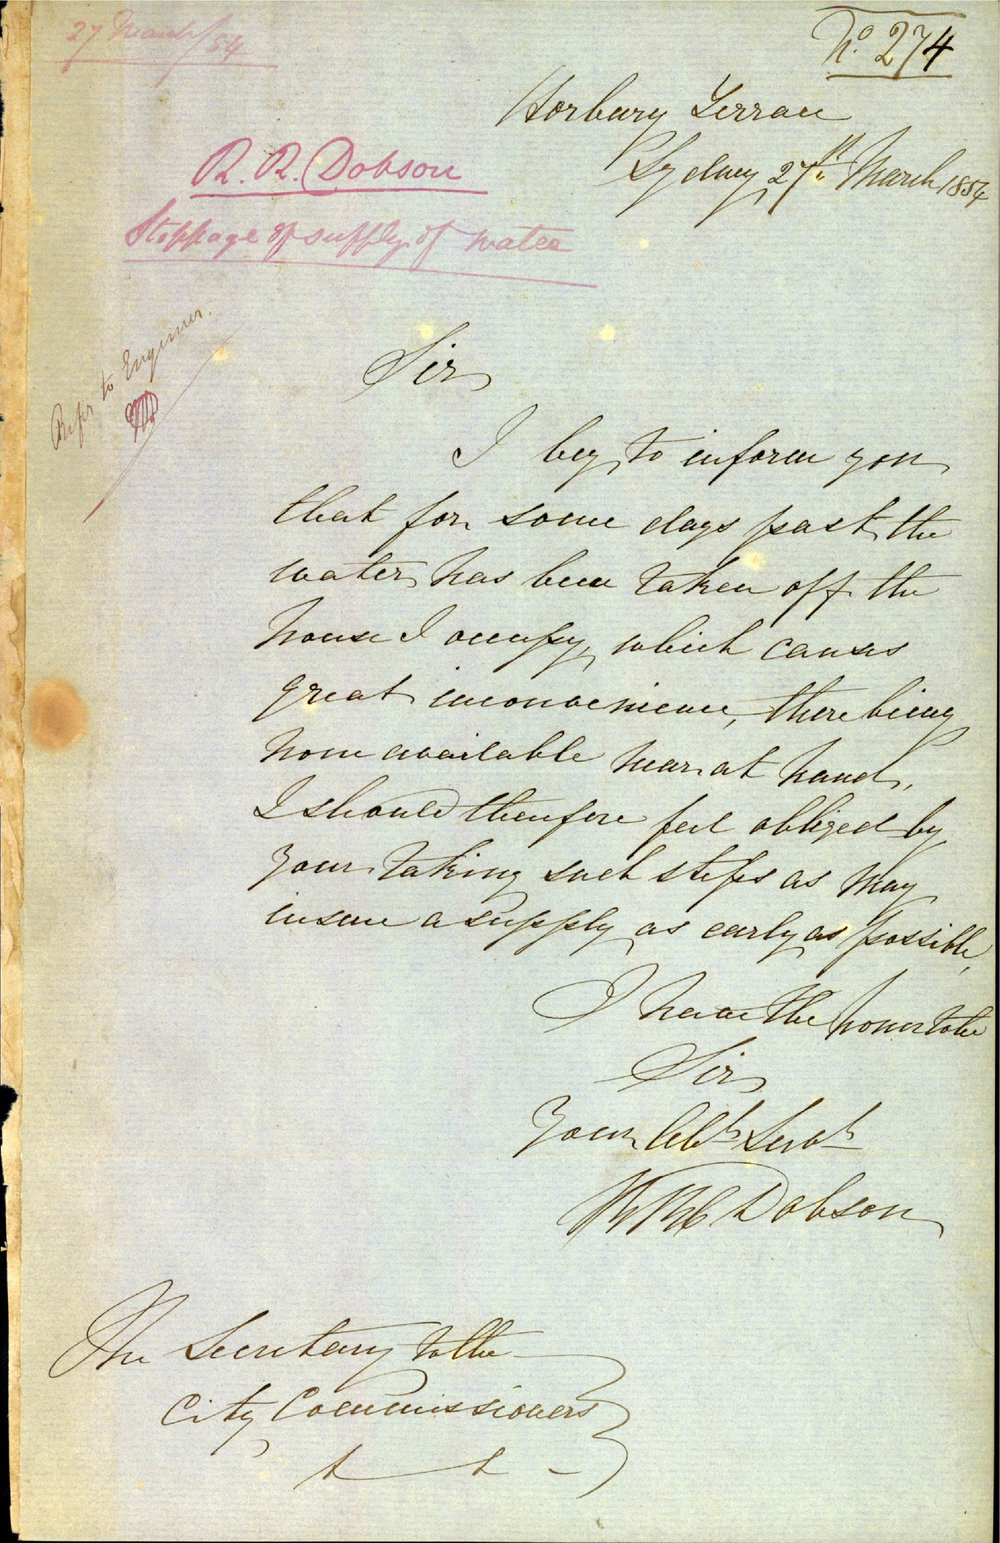 27 March/54
No. 274
Horbury Terrace
Sydney, 27th March 1854
R. R. Dobson
Stoppage of supply of water
Refer to Engineer.
Sir
I beg to inform you
that for some days past the
water has been taken off the
house I occupy, which causes
great inconvenience, there being
none available near at hand,
I should therefore feel obliged by
your taking such steps as may
insure a supply as early as possible,
I have the honor to be
Sir
Your Obt Servt
Dobson
The Secretary to the
City Commissioners